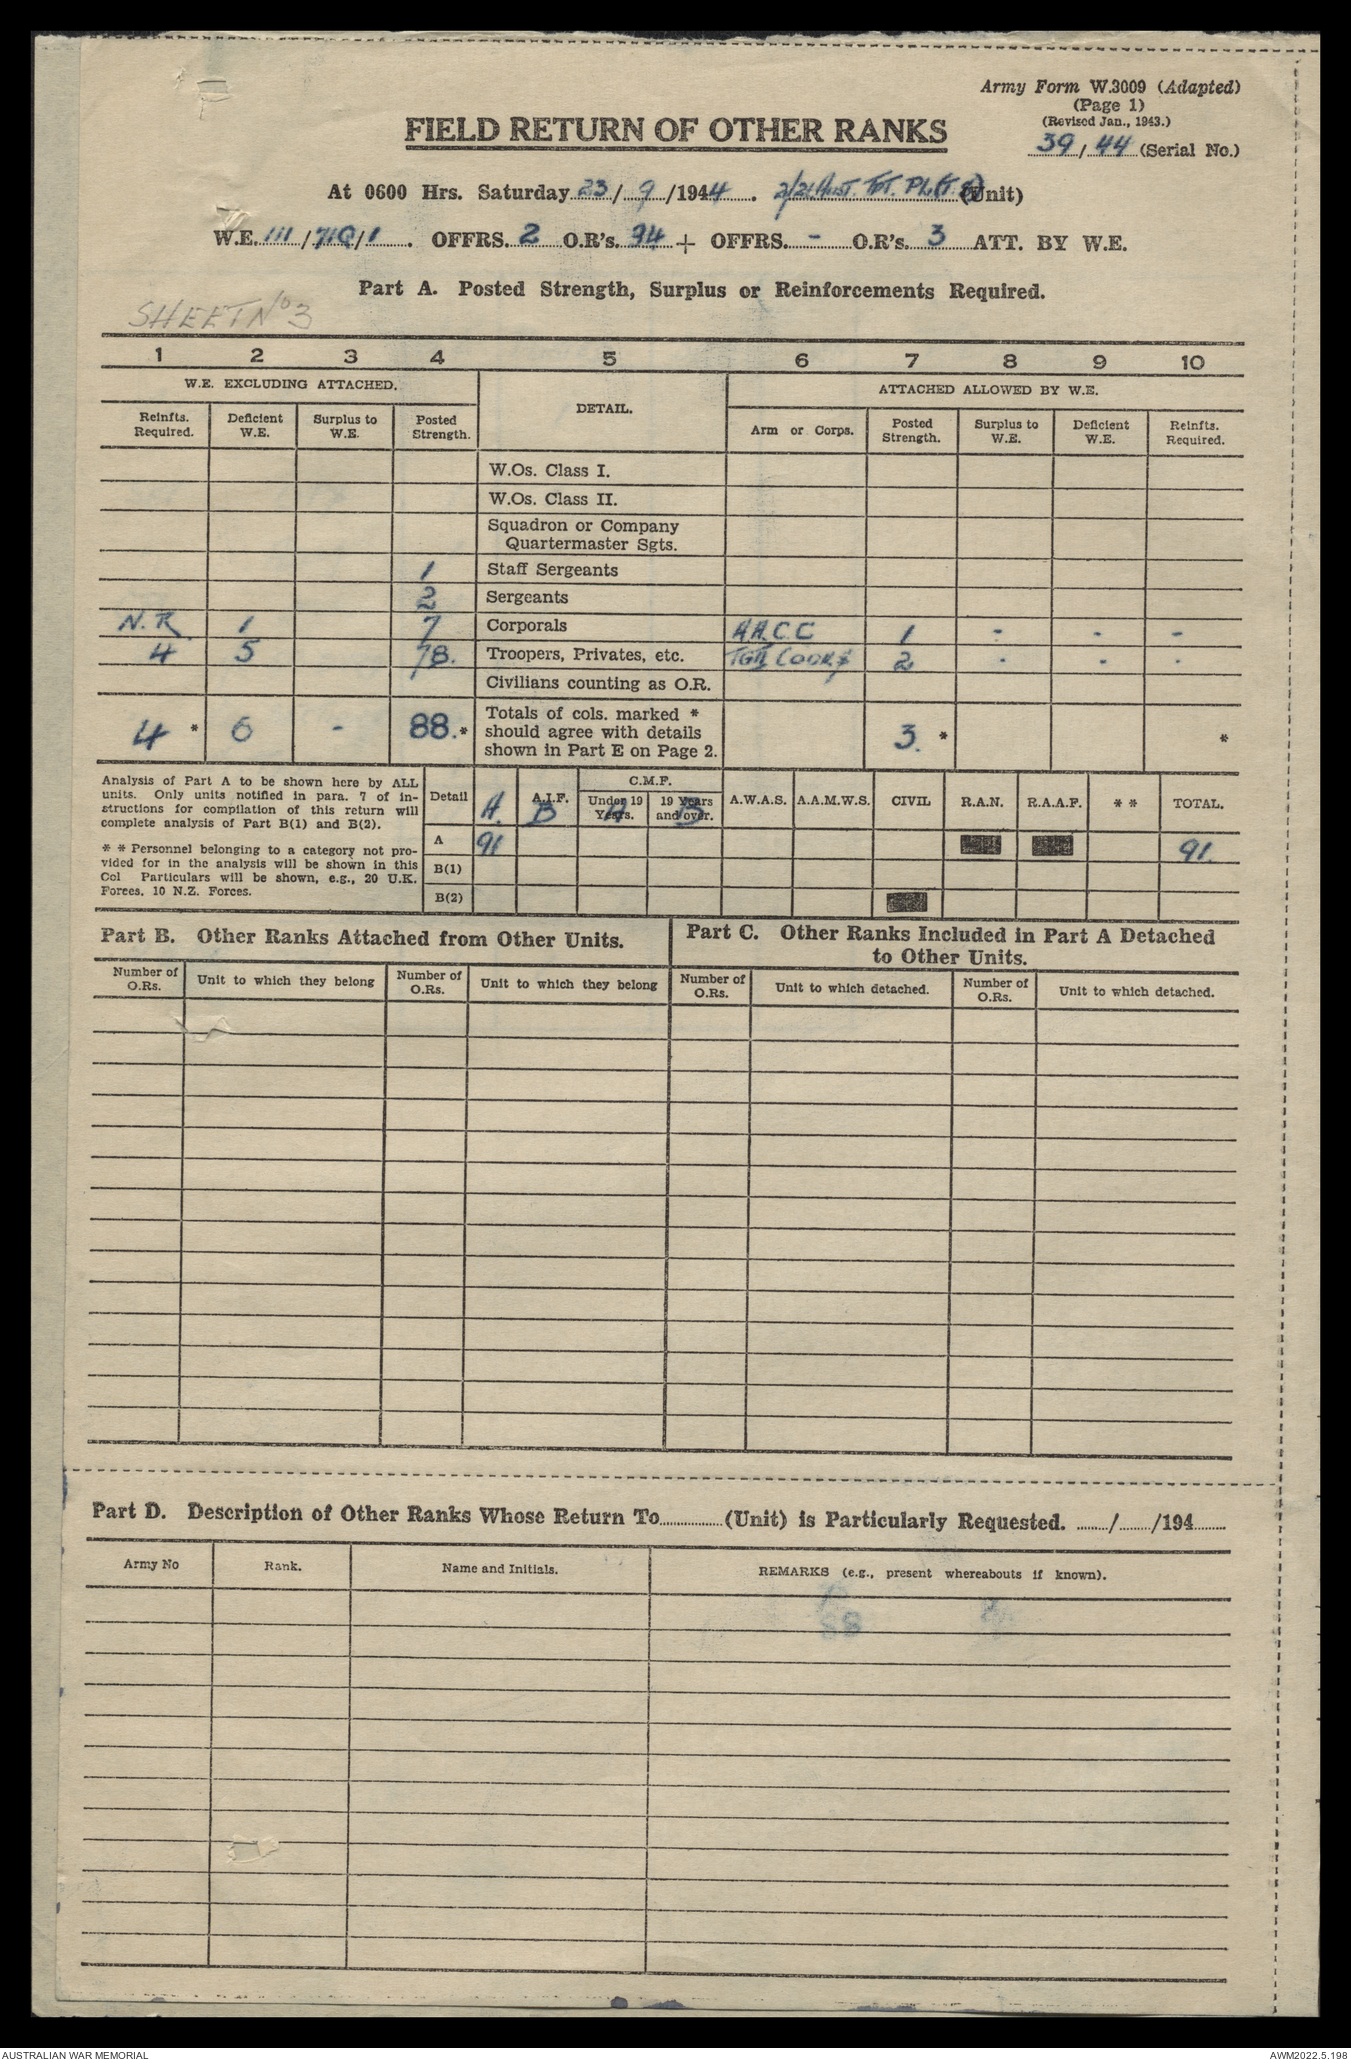 Army Form W.3009 (Adapted)
(Page 1)
(Revised Jan., 1943.)
39/44 (Serial No.)
FIELD RETURN OF OTHER RANKS
At 0600 Hrs. Saturday 23/9/1944. 2/21 Aust. Tpt. Pl. (Unit)
W.E. 111/71C/1. OFFRS. 2 O.R's. 94 + OFFRS. - O.R's. 3 ATT. BY W.E.
Part A. Posted Strength, Surplus or Reinforcements Required.
SHEET No 3
1 2 3 4 5 6 7 8 9 10
W.E. EXCLUDING ATTACHED. DETAIL. ATTACHED ALLOWED BY W.E.
Reinfts. Required. Deficient W.E. Surplus to W.E. Posted Strength. Arm or Corps. Posted Strength. Surplus to W.E. Deficient W.E. Reinfts. Required.
W.Os. Class I.
W.Os. Class II.
Squadron or Company
Quartermaster Sgts.
1 Staff Sergeants
2 Sergeants
N.R. 1 7 Corporals A.A.C.C 1 - - -
4 5 78. Troopers, Privates, etc. COOKS 2 - - -
Civilians counting as O.R.
4 * 6 - 88. * Totals of cols. marked * should agree with details shown in Part E on Page 2. 3. * *
Analysis of Part A to be shown here by ALL
units. Only units notified in para. 7 of in-
structions for compilation of this return will
complete analysis of Part B(1) and B(2).
* * Personnel belonging to a category not pro-
vided for in the analysis will be shown in this
Col Particulars will be shown, e.g., 20 U.K.
Forces, 10 N.Z. Forces.
C.M.F.
Detail A. A.I.F. B Under 19 Years. A 19 Years and over. B A.W.A.S. A.A.M.W.S. CIVIL R.A.N. R.A.A.F. * * TOTAL.
A 91 91.
B(1)
B(2)
Part B. Other Ranks Attached from Other Units.
Part C. Other Ranks Included in Part A Detached
to Other Units.
Number of O.Rs. Unit to which they belong Number of O.Rs. Unit to which they belong Number of O.Rs. Unit to which detached. Number of O.Rs. Unit to which detached.
Part D. Description of Other Ranks Whose Return To............(Unit) is Particularly Requested. ....../....../194......
Army No Rank. Name and Initials. REMARKS (e.g., present whereabouts if known).
AUSTRALIAN WAR MEMORIAL AWM2022.5.198